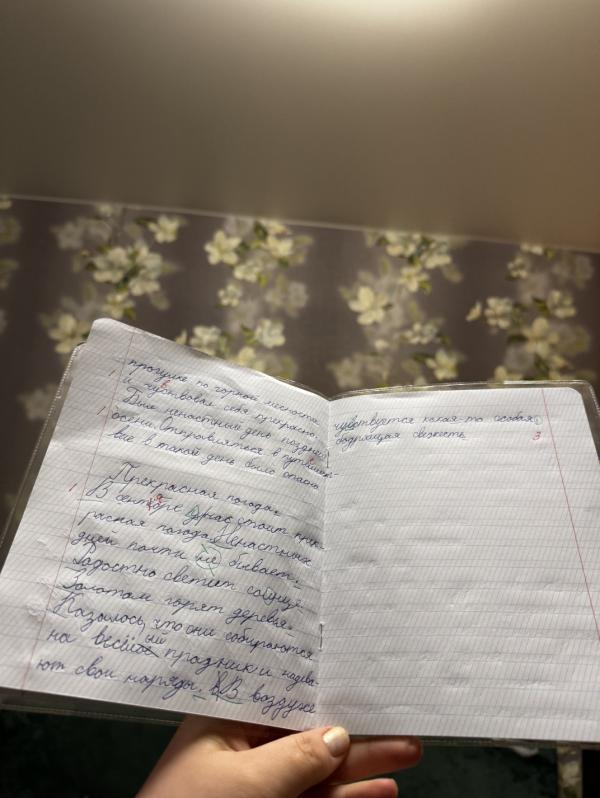 прогулке по горной местности
и чувствовал себя прекрасно.
Был ненастный день поздней
осени. Отправляться в путешест-
вие в такой день было опасно.
Прекрасная погода.
В сентябре у нас стоит прек-
расная погода. Ненастных
дней почти не бывает.
Радостно светит солнце.
Золотом горят деревья.
Казалось, что они собираются
на весёлый праздник и надева-
ют свои наряды. В воздухе
чувствуется какая-то особая
бодрящая свежесть
3